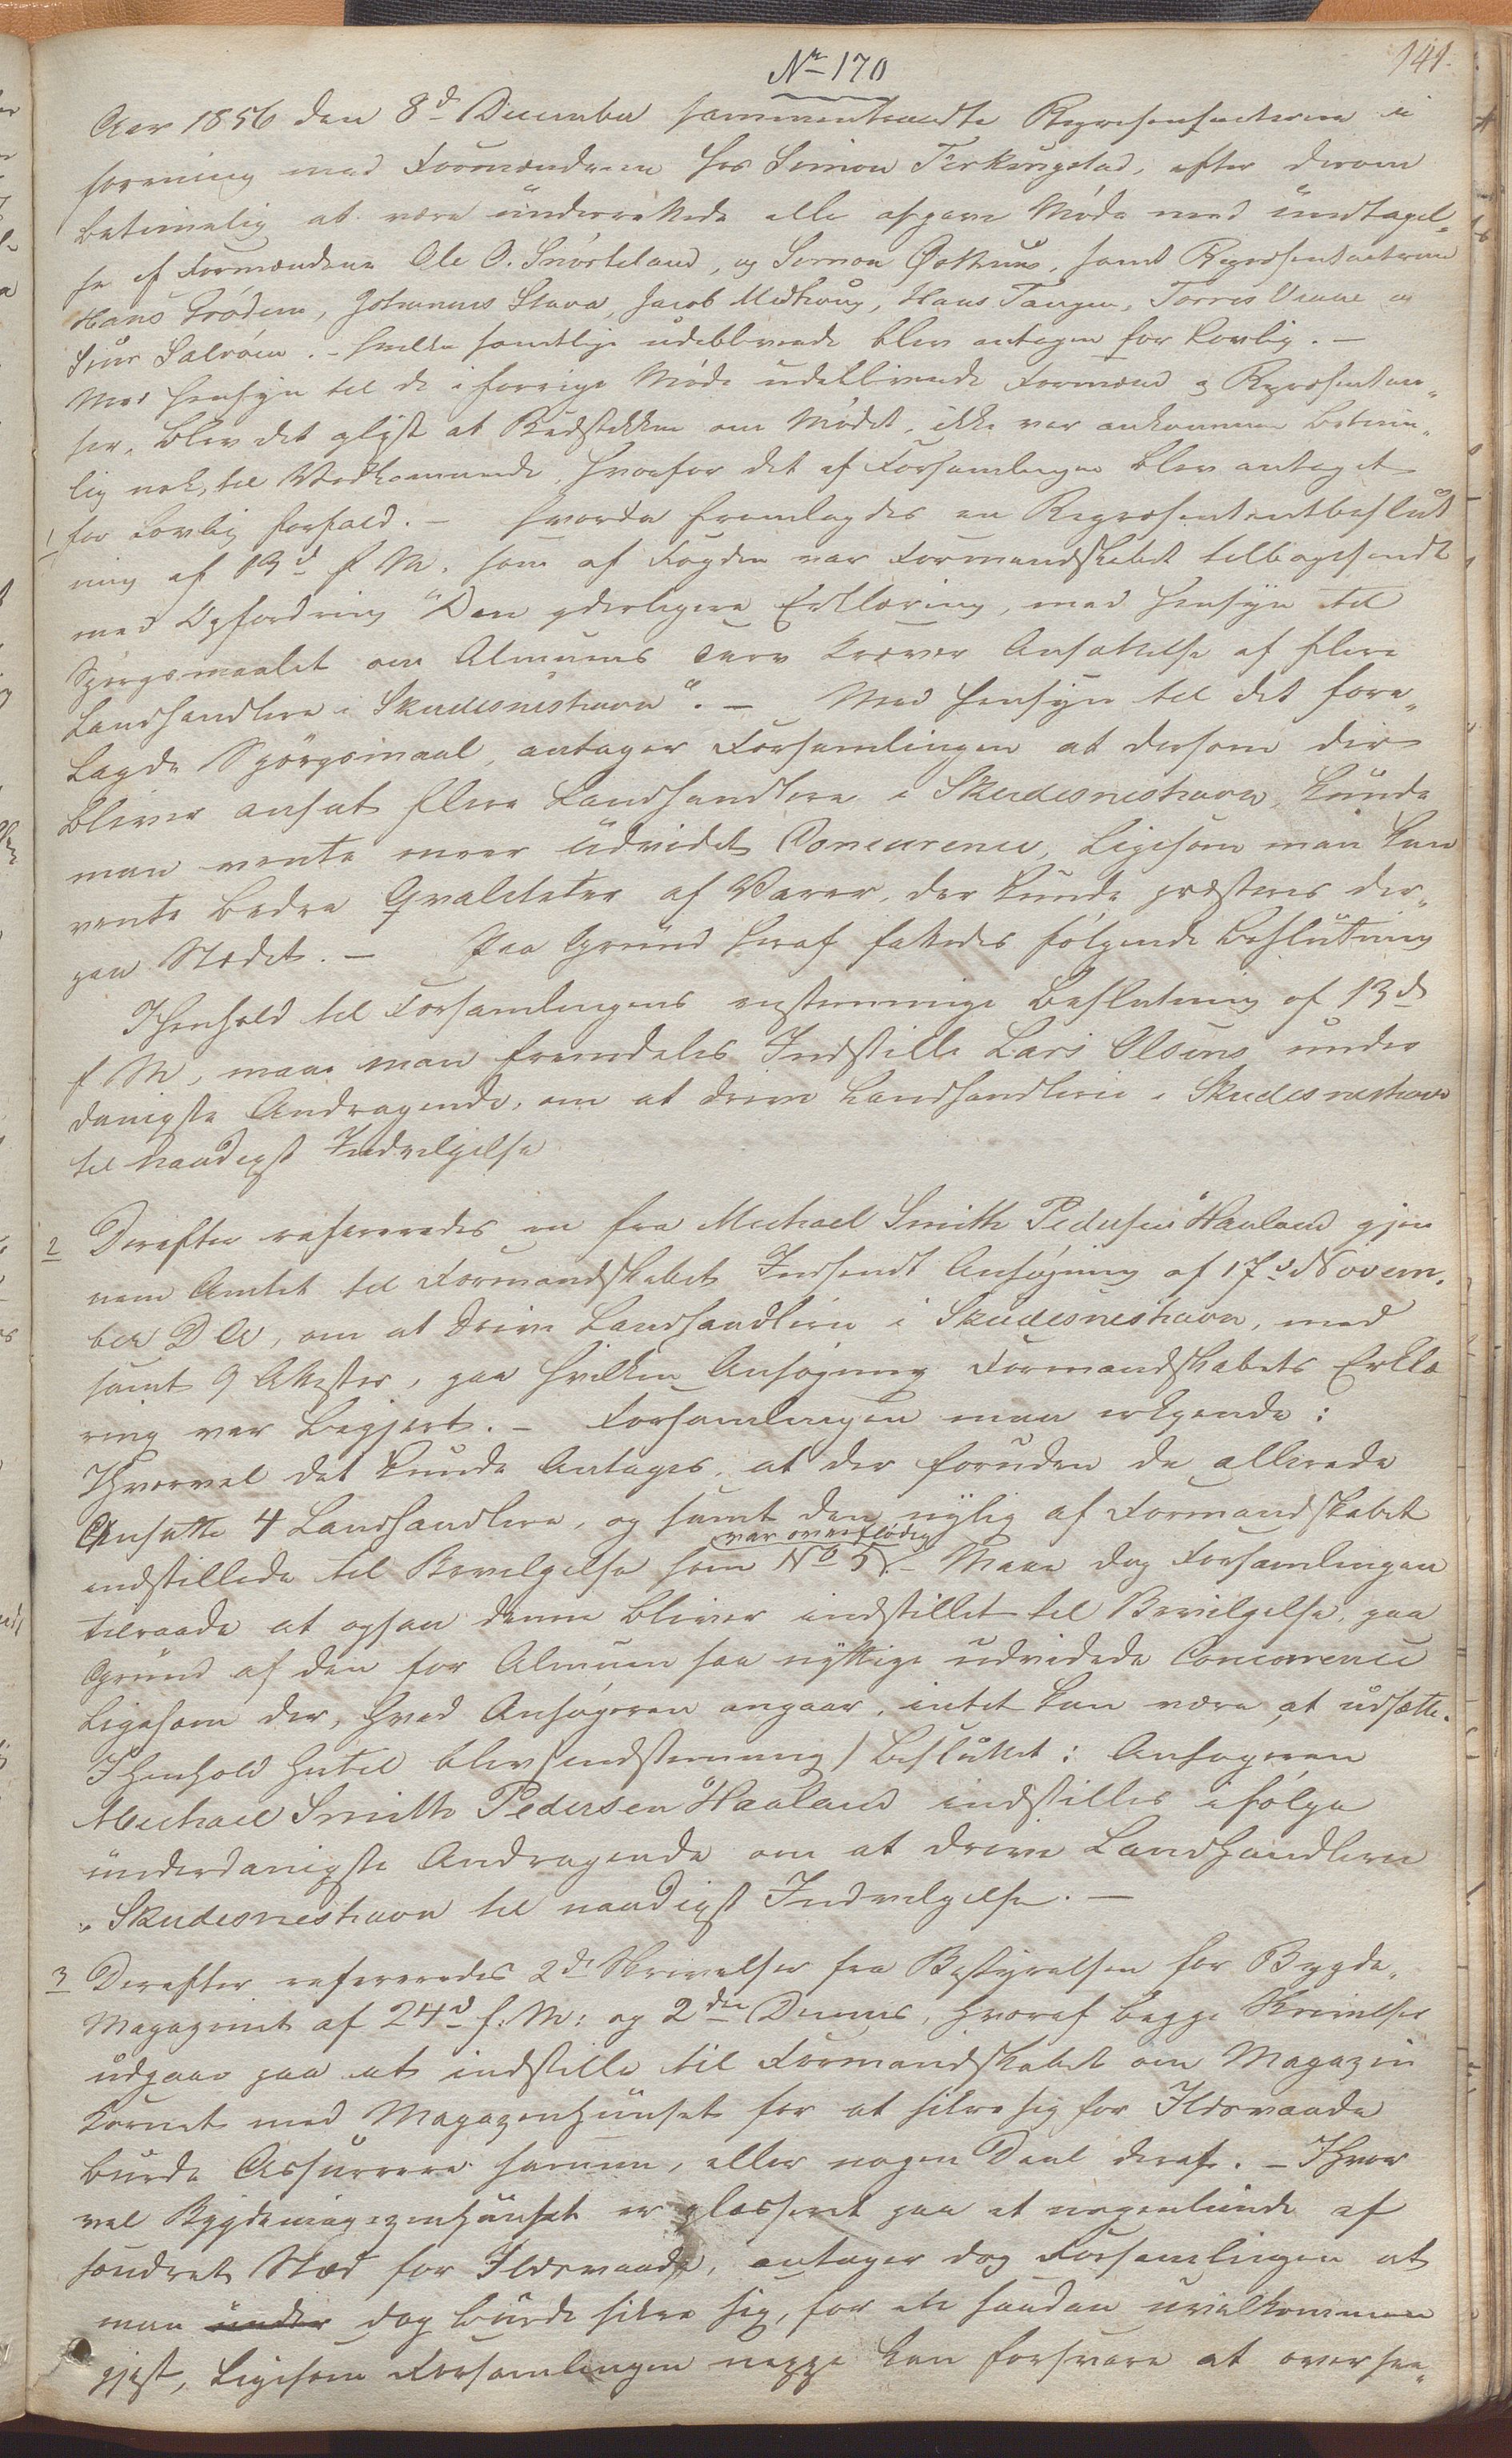 141.
No 170
Aar 1856 den 8d December sammentraadte Repræsentanterne i
forening med Formændene hos Simon Ferkingstad, efter derom
betimelig at være underrettede alle afgave Møde med undtagel„
se af Formændene Ole O. Snörteland, og Simon Östhuus, samt Repræsentanterne
Hans Trödem, Johannes Stava, Jacob Medhoug, Hans Tangen, Torres Veaae og
Siur Salvöen. – hvilke samtlige udeblivende blev antagen for Lovlig. –
Med Hensyn til de i forrige Møde udeblivende Formænd og Repræsentan„
ter, blev det oplyst at Budstikken om Mödet, ikke var ankommen betime„
lig nok, til Vedkommende, hvorfor det af Forsamlingen blev antaget
1 for Lovlig forfald. – hvorda fremlagdes en Repræsentantbeslut
ning af 13d f. M. som af Fogden var Formandskabet tilbagesendt
med Opfordring "Den yderligere Erklæring, med Hensyn til
Spörgsmaalet om Almuens Tarv kræver Ansættelse af flere
Landhandlere i Skudesneshavn". – Med Hensyn til det fore„
lagde Spörgsmaal, antager Forsamlingen at dersom der
bliver ansat flere Landhandlere i Skudesneshavn, kunde
man vente meer udvidet Concurence, Ligesom man kan
vente bedre Qvaliteter af Varer, der kunde præsteres der„
paa Stædet. – Paa Grund heraf fattedes fölgende Beslutning
I Henhold til Forsamlingens enstemmige Beslutning af 13de
f M, maa man fremdeles Indstille Lars Olsens under
danigste Andragende, om at drive Landhandlerie i Skudesneshavn
til naadigst Indvilgelse
2 Derefter refereredes en fra Michael Smith Pedersen Haaland gjen
nem Amtet til Formandskabet Indsendt Ansögning af 17d Novem„
ber D A, om at drive Landhandleri i Skudesneshavn, med
samt 9 Attester, paa hvilken Ansögning Formandskabets Erklæ
ring var begjert. – Forsamlingen maa erkjende:
Ihvorvel det kunde Antages, at der foruden de allerede
Ansatte 4 Landhandlere, og samt den nylig af Formandskabet
var overflödig
indstillede til Bevilgelse som No 5. – Maae dog Forsamlingen
tilraade at ogsaa denne bliver indstillet til Bevilgelse, paa
Grund af den for Almuen saa nyttige udvidede Concurence
Ligesom der, hvad Ansögeren angaar, intet kan være at udsætte.
I Henhold hertil blev (endstemmig) besluttet: Ansögeren
Michael Smith Pedersen Haaland indstilles ifölge
underdanigste Andragende om at drive Landhandlerie
i Skudesneshavn til naadigst Indvilgelse. –
3 Derefter refereredes 2de Skrivelser fra Bestyrelsen for Bygde„
Magazinet af 24d f. M: og 2den Dennes, hvoraf begge Skrivelser
udgaar paa at indstille til Formandskabet om Magazin
Kornet med Magazinhuuset for at sikre sig for Ildsvaade
burde Assurere sammen, eller nogen Deel deraf. – Ihvor
vel Bygdemagazinhuuset er plasseret paa et nogenlunde af
sondret Stæd for Ildsvaade, antager dog Forsamlingen at
man under dog burde sikre sig, for en saadan uvelkommen
gjest, Ligesom Forsamlingen neppe kan forsvare at oversee„